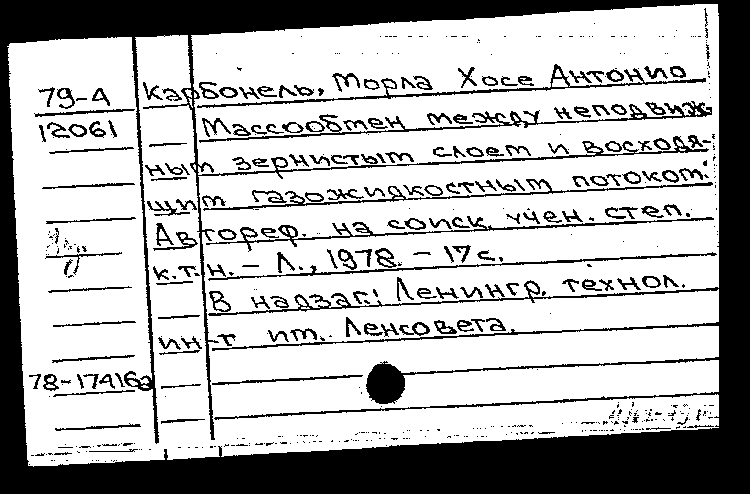 79-А Карбонель, Морла Хосе Антонио
12061 Массообмен между неподвиж-
ным зернистым слоем и восходя-
щим газожидкостным потоком:
Автореф. на соиск. учен. степ.
к.т.н. - Л., 1978. - 17 с.
В надзаг.: Ленингр. технол.
ин-т им. Ленсовета.
78-17416а